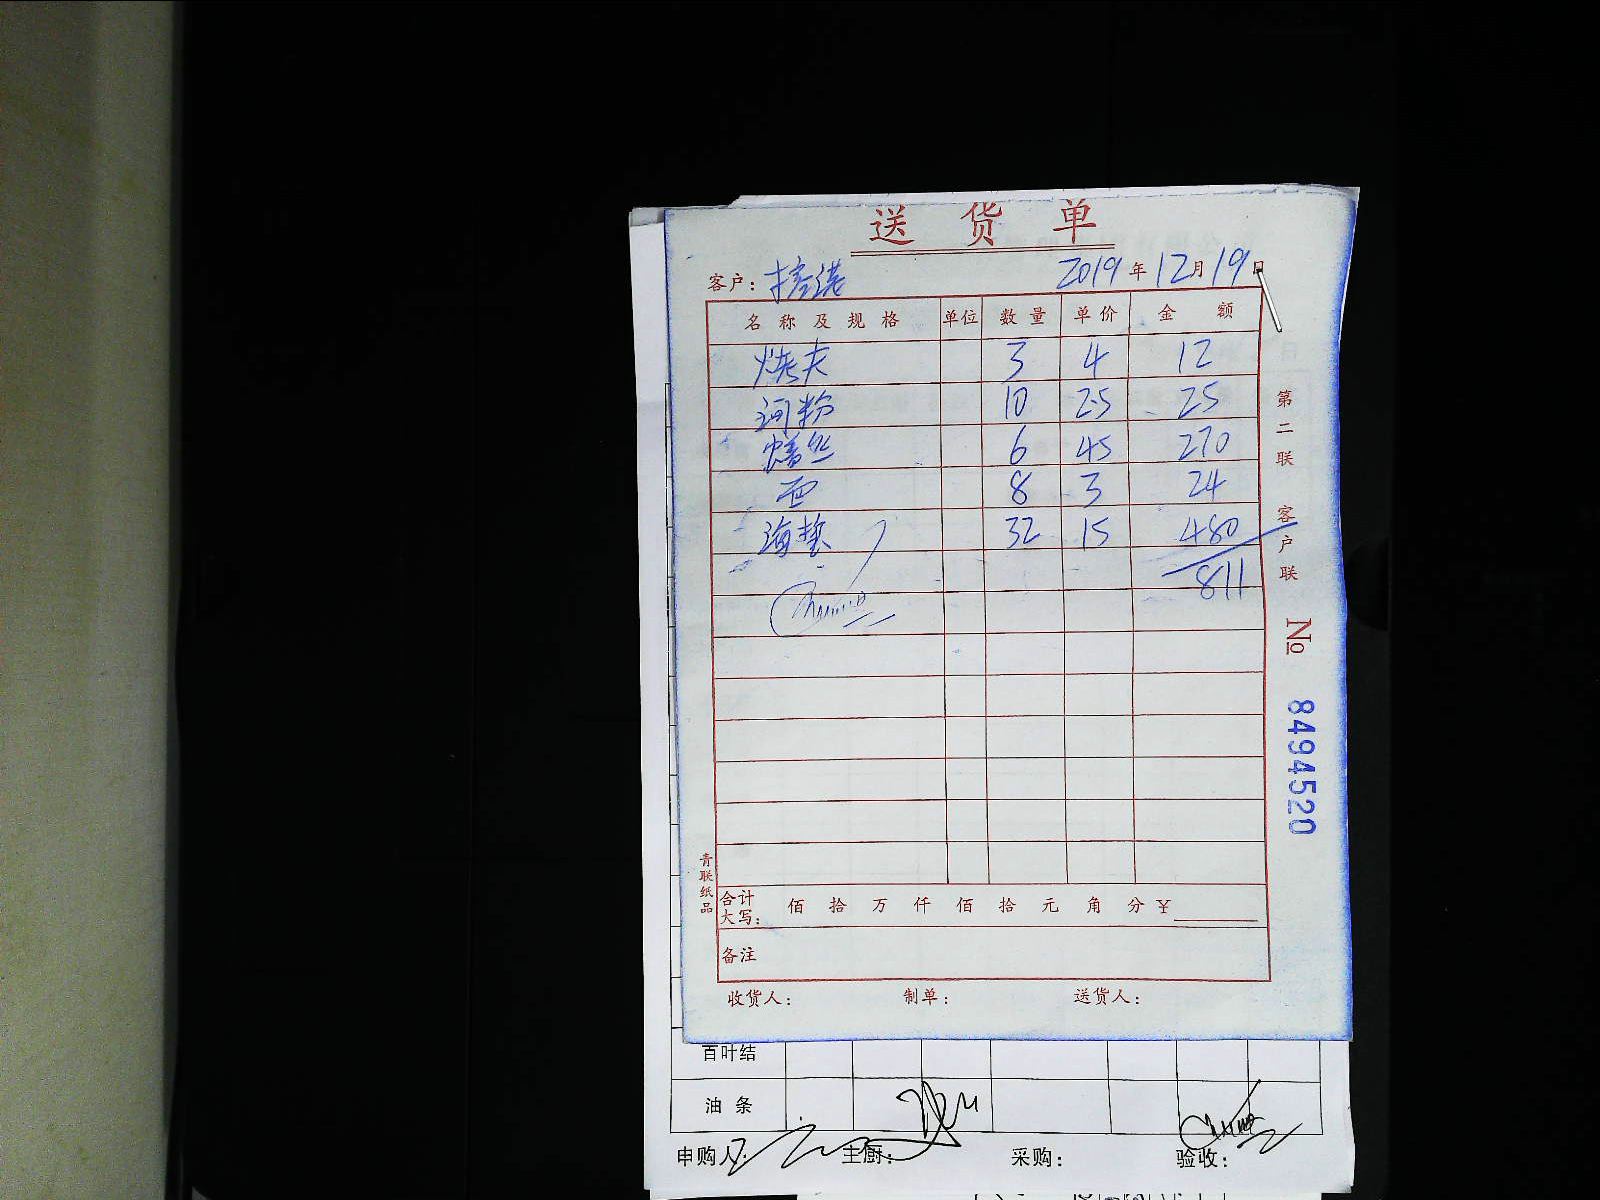 送货单
客户： 2019年12月19日
名称及规格 单位 数量 单价 金额
烤夫 3 4 12
河粉 10 2.5 25
鳝丝 6 45 270
面 8 3 24
海蜇 32 15 480
811
第二联 客户联
№ 8494520
青联纸品
合计大写： 佰 拾 万 仟 佰 拾 元 角 分 ¥
备注
收货人： 制单： 送货人：
百叶结
油条
申购人： 主厨： 采购： 验收：